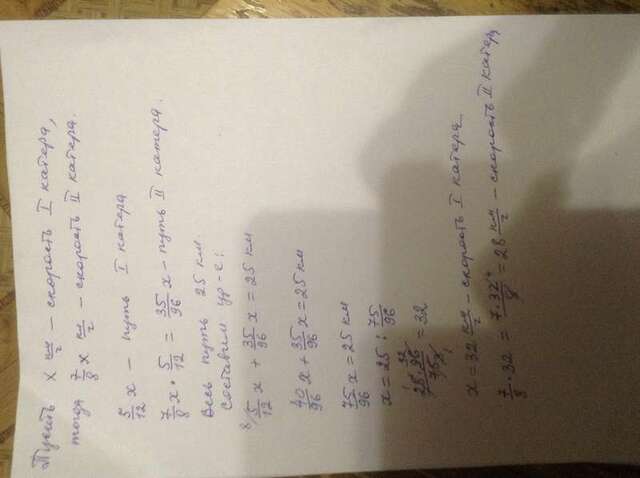 Пусть x км/ч – скорость I катера,
тогда 7/8 x км/ч – скорость II катера.
5/12 x – путь I катера
7/8 x · 5/12 = 35/96 x – путь II катера.
Весь путь 25 км.
Составим ур-е:
8/ 5/12 x + 35/96 x = 25 км
40/96 x + 35/96 x = 25 км
75/96 x = 25 км
x = 25 : 75/96
1 32
25 · 96 / 75 = 32
x = 32 км/ч – скорость I катера
7/8 · 32 = 7 · 32 4 / 8 = 28 км/ч – скорость II катера